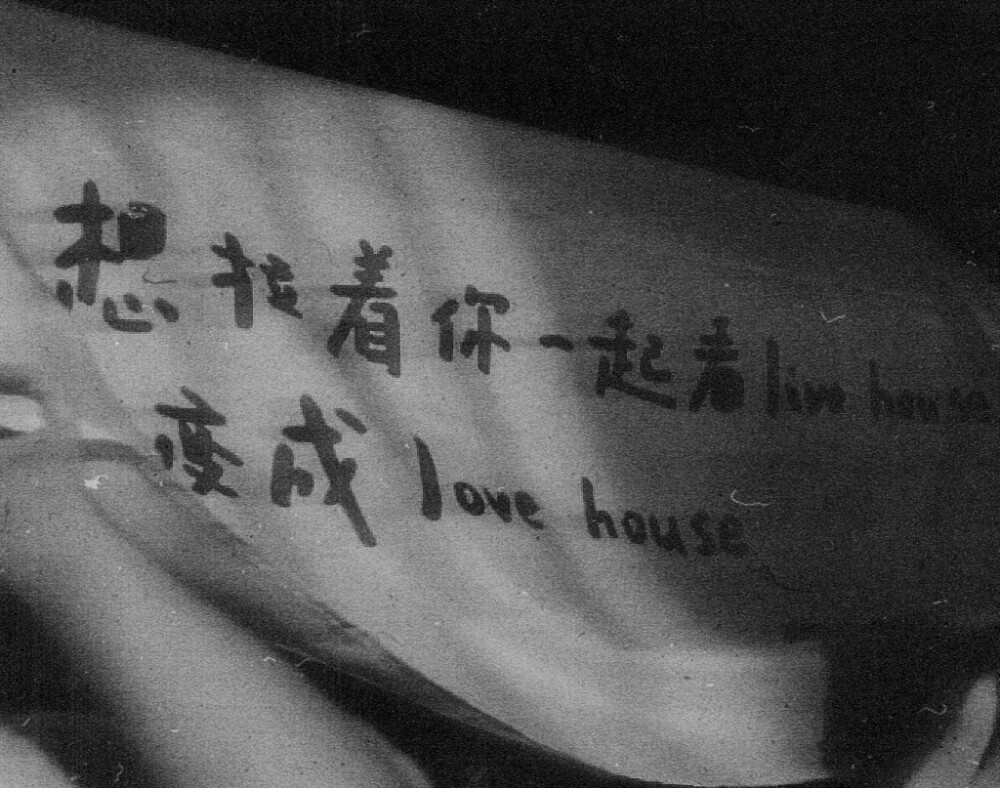 想搂着你一起看live house
变成love house